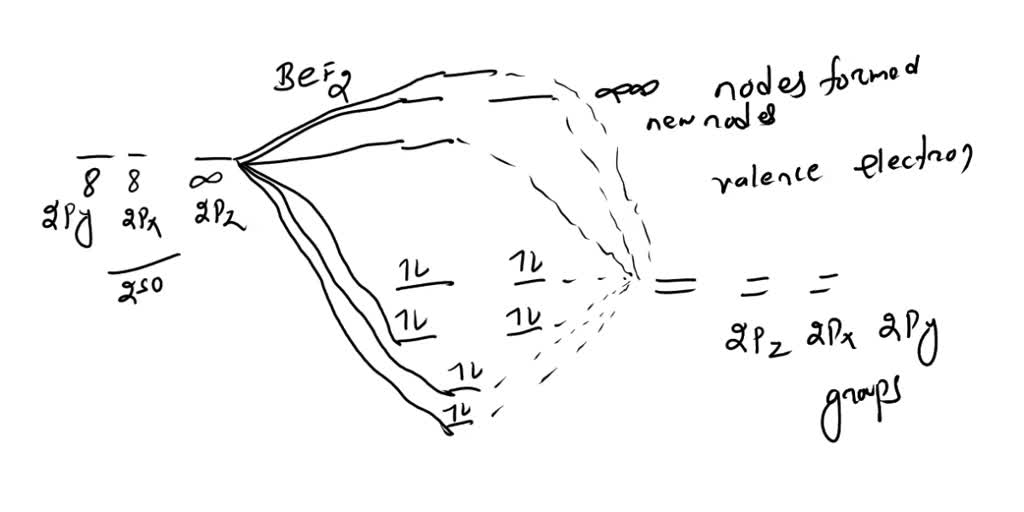 BeF2
nodes formed
new nodes
valence electron
8 8 ∞
2Py 2Px 2Pz
2so
1L 1L
1L 1L
1L
1L
2Pz 2Px 2Py
groups